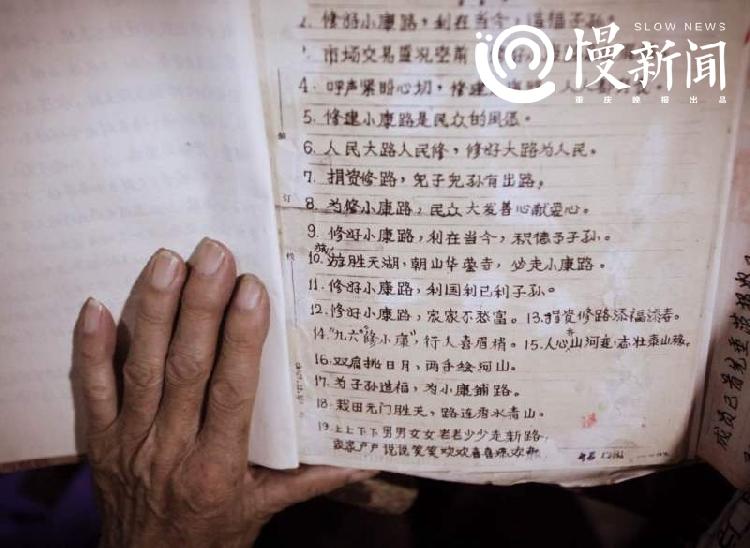 2. 修好小康路，利在当今，造福子孙。
SLOW NEWS
慢新闻
重庆晚报出品
市场交易盛况空前
4. 呼声紧暗心切，修建
5. 修建小康路是民众的风张。
6. 人民大路人民修，修好大路为人民。
7. 捐资修路，儿子儿孙有出路，
8. 为修小康路，民众大发善心献爱心。
9. 修好小康路，利在当今，积德予子孙。
10. 游胜天湖，朝山华蓥寺，必走小康路。
11. 修好小康路，利国利己利子孙。
12. 修好小康路，家家不愁富。13. 捐资修路添福添寿。
14. "九六"修小康，行人喜眉梢。15. 人心山河走，志壮泰山移。
16. 双肩挑日月，两手绘河山。
17. 为子孙造福，为小康铺路。
18. 栽田无门胜天，路连秀水青山。
19. 上上下下男男女女老老少少走新路，
家家户户说说笑笑欢欢喜喜
订
线